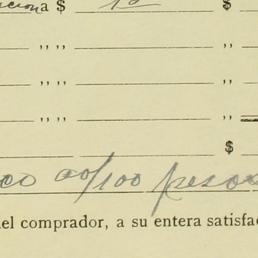 a $ $
" " "
" " "
" " "
$
co 00/100 pesos
del comprador, a su entera satisfac